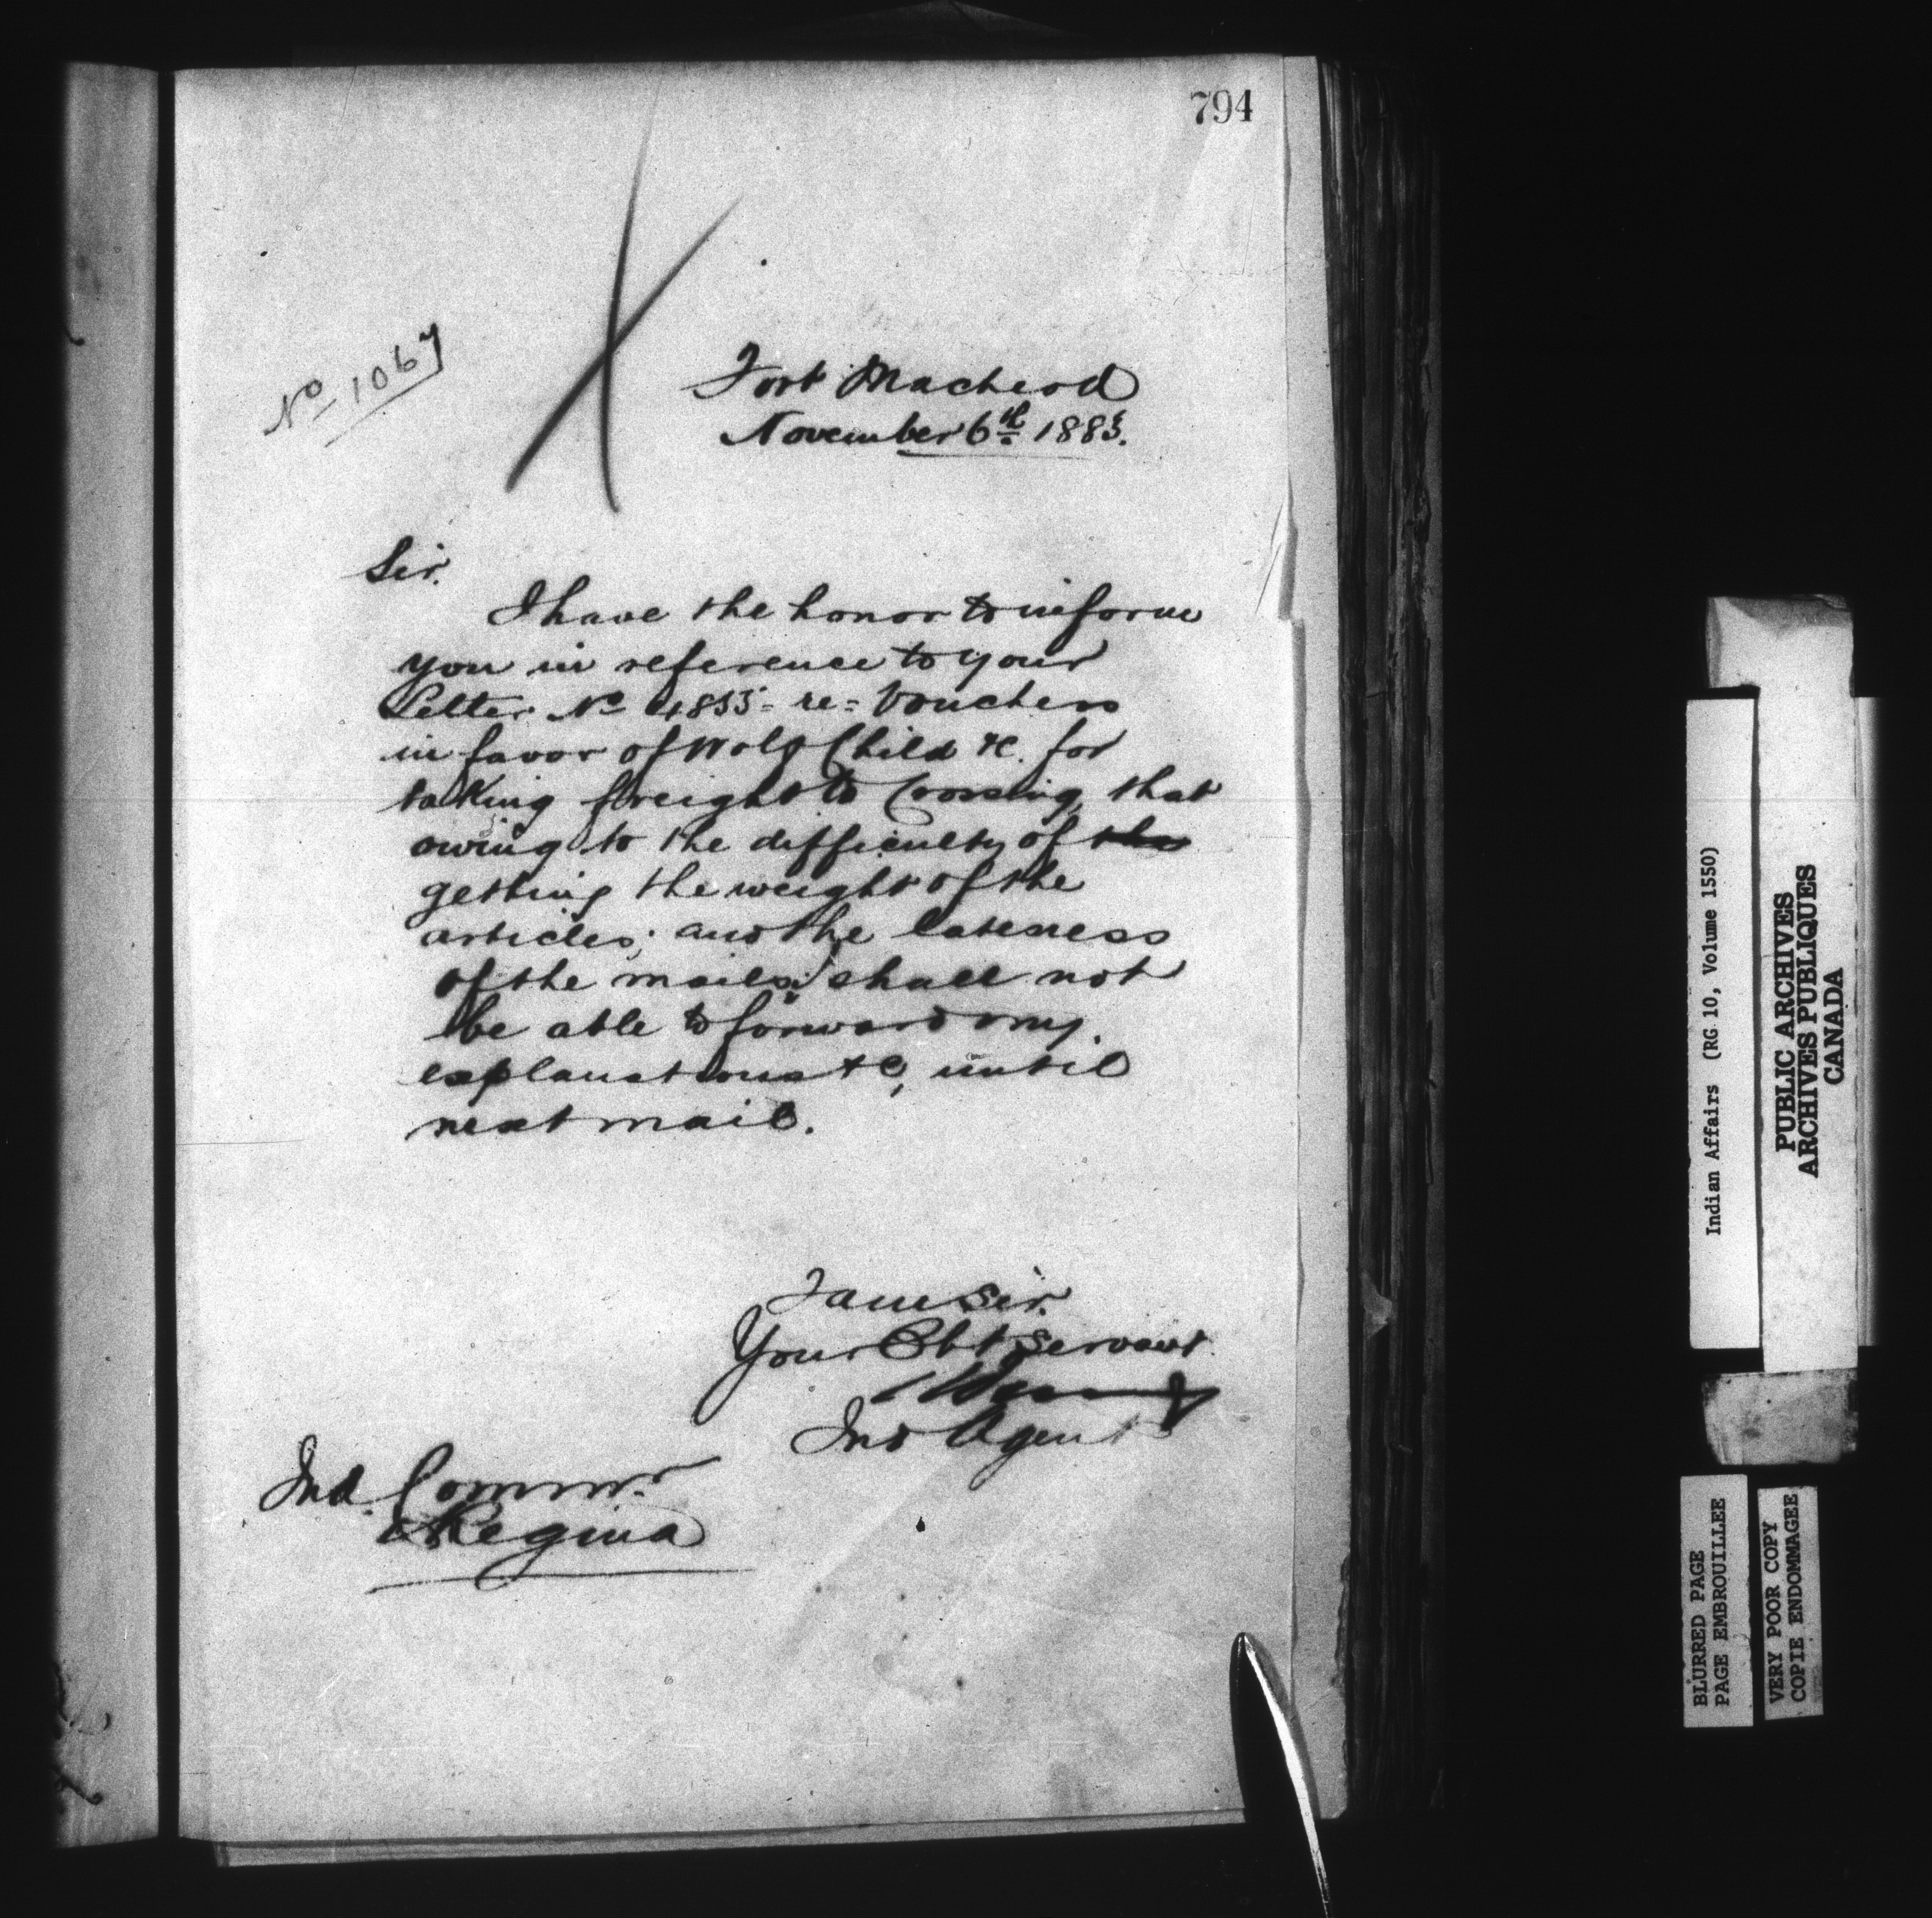 794
No 1067
Fort Macleod
November 6th 1883.
Sir.
I have the honor to inform
you in reference to your
Letter No 4835 - re = Vouchers
in favor of Wolf Child &c. for
taking freight to Crossing, that
owing to the difficulty of the
getting the weight of the
articles; and the lateness
of the mails I shall not
be able to forward my
explanations &c, until
next mail.
I am Sir.
Your Obt Servant
Ind Agent
Ind. Commr.
Regina
Indian Affairs (RG 10, Volume 1550)
PUBLIC ARCHIVES
ARCHIVES PUBLIQUES
CANADA
BLURRED PAGE
PAGE EMBROUILLEE
VERY POOR COPY
COPIE ENDOMMAGEE